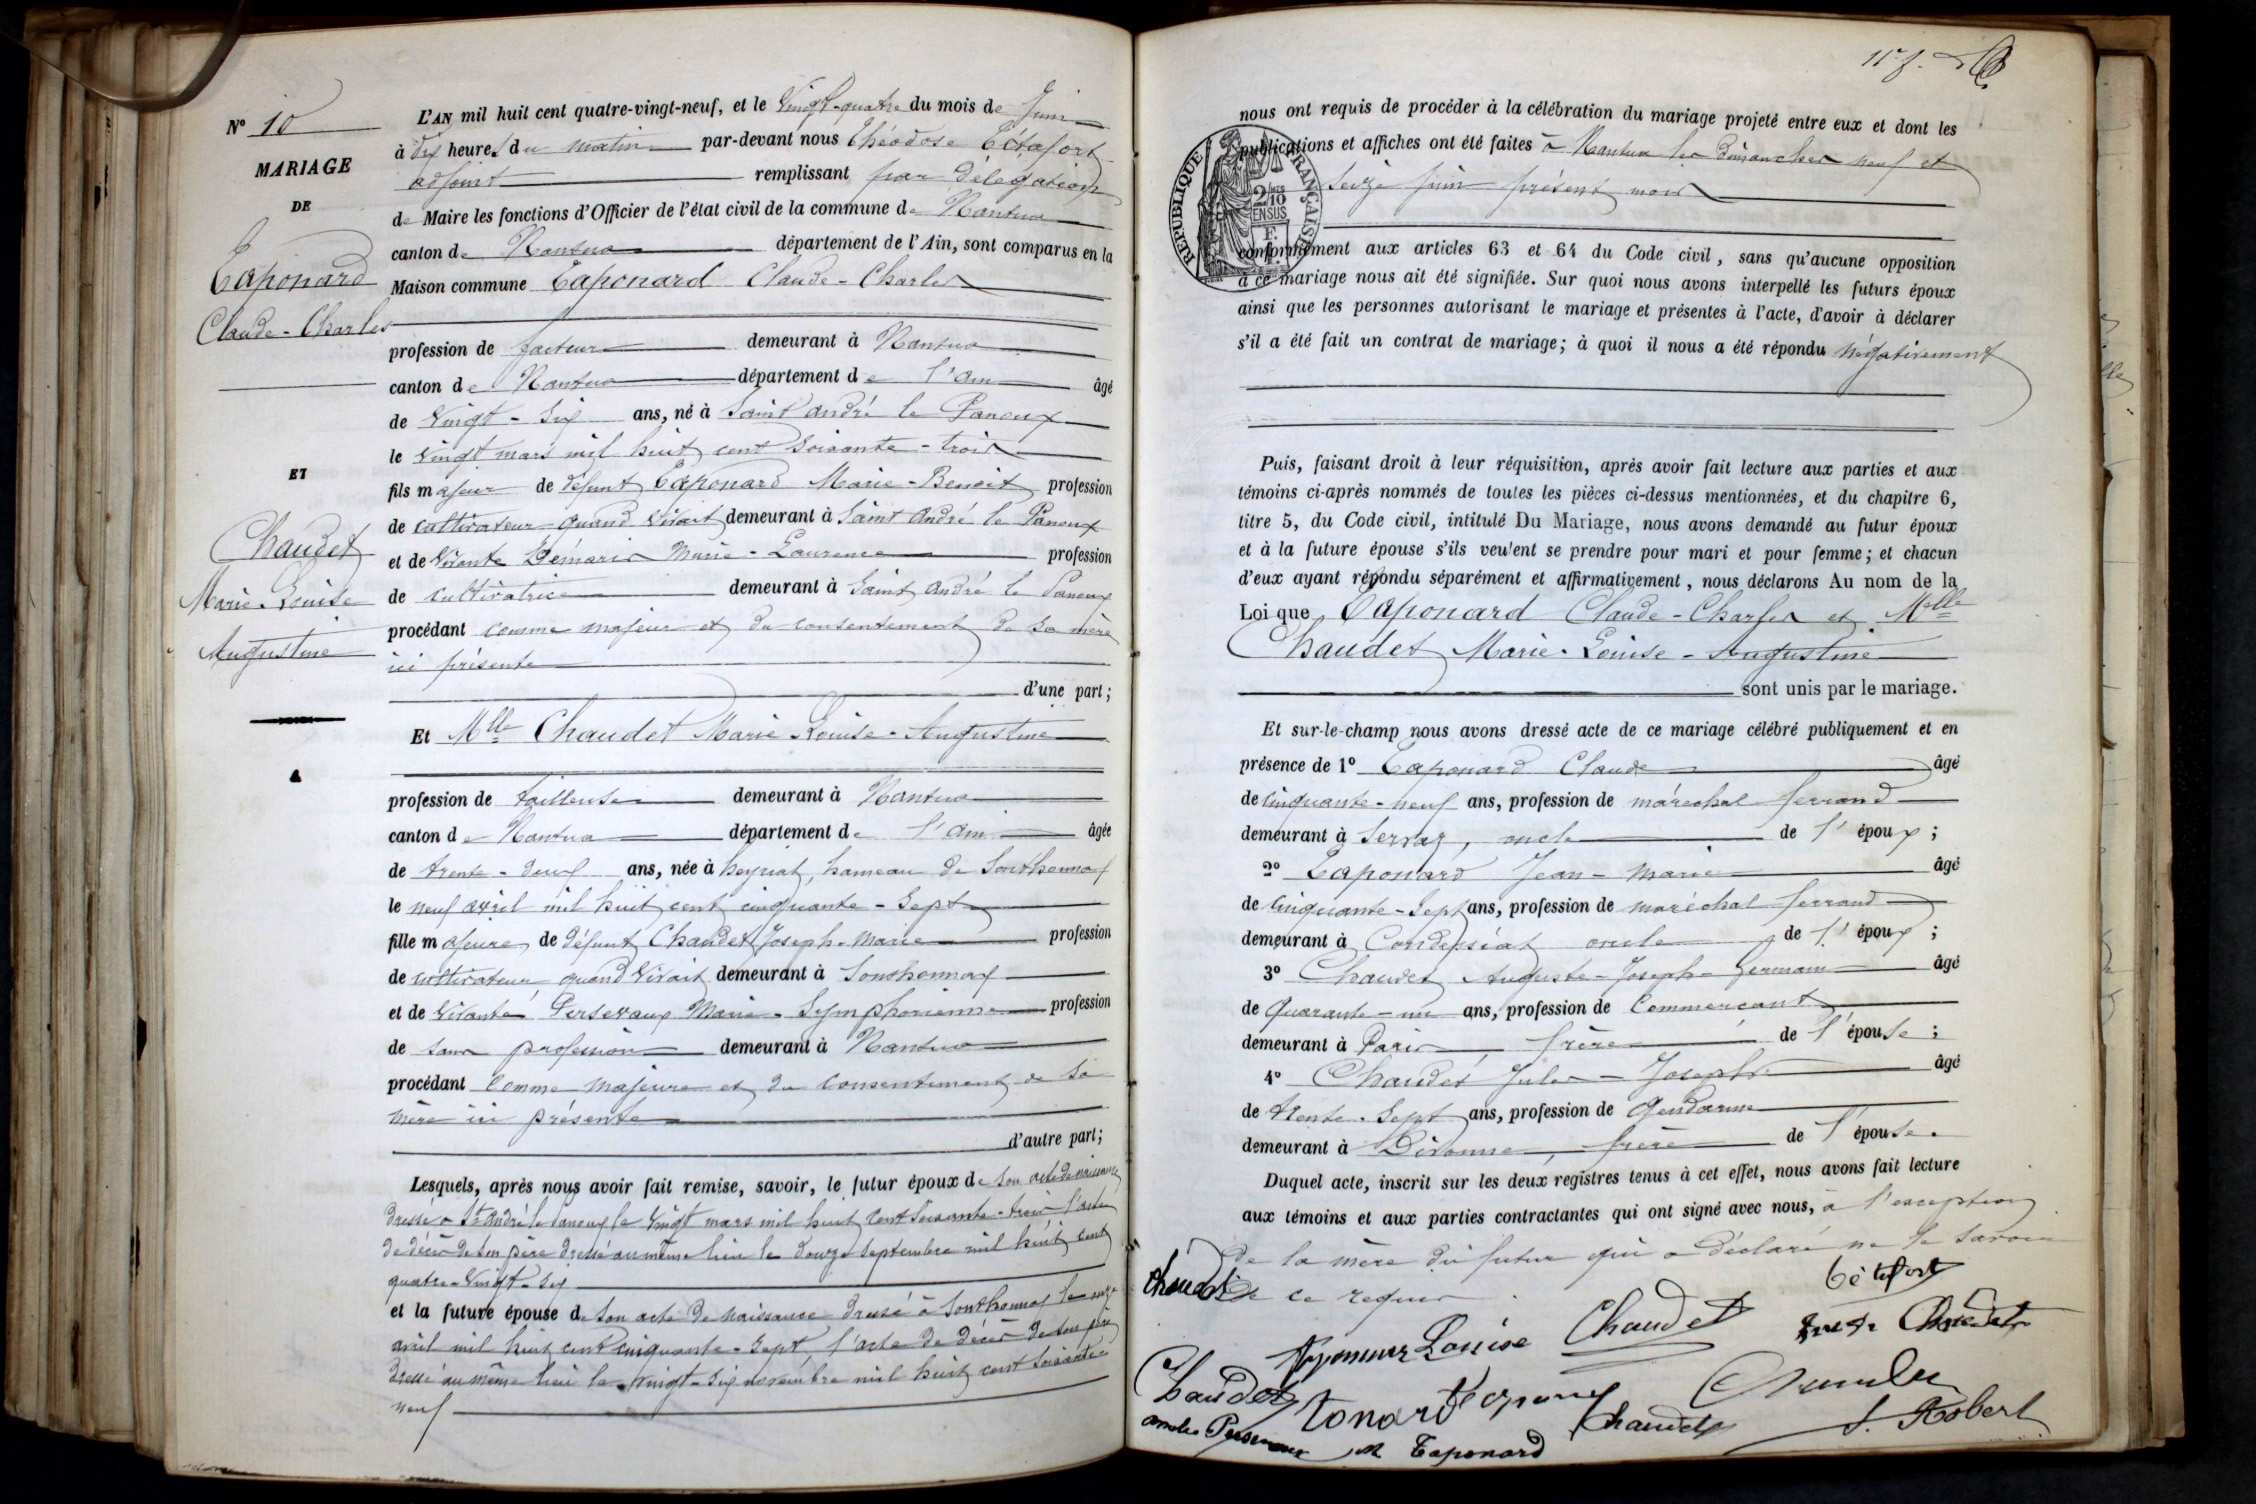 N° 10
MARIAGE
DE
Taponard
Claude-Charles
ET
Chaudet
Marie-Louise
Augustine
L'AN mil huit cent quatre-vingt-neuf, et le vingt-quatre du mois de Juin
à dix heures du matin par-devant nous Théodose Tétafort
adjoint remplissant par délégation
de Maire les fonctions d'Officier de l'état civil de la commune de Nantua
canton de Nantua département de l'Ain, sont comparus en la
Maison commune Taponard Claude-Charles
profession de facteur demeurant à Nantua
canton de Nantua département de l'Ain âgé
de vingt-six ans, né à Saint André le Panoux
le vingt mars mil huit cent soixante-trois
fils majeur de défunt Taponard Marie-Benoit profession
de cultivateur quand vivait demeurant à Saint André le Panoux
et de vivante Démaris Marie-Laurence profession
de cultivatrice demeurant à Saint André le Panoux
procédant comme majeur et du consentement de sa mère
ici présente
d'une part;
Et Mlle Chaudet Marie Louise-Augustine
profession de tailleuse demeurant à Nantua
canton de Nantua département de l'Ain âgée
de trente-deux ans, née à heyriat, hameau de Sonthonnax
le neuf avril mil huit cent cinquante-sept
fille majeure de défunt Chaudet Joseph-Marie profession
de cultivateur quand vivait demeurant à Sonthonnax
et de vivante Persevaux Marie-Symphorienne profession
de sans profession demeurant à Nantua
procédant comme majeure et du consentement de sa
mère ici présente
d'autre part;
Lesquels, après nous avoir fait remise, savoir, le futur époux de son acte de naissance
dressé à St André le Panoux le vingt mars mil huit cent soixante-trois l'acte
de décès de son père dressé au même lieu le douze septembre mil huit cent
quatre-vingt-six
et la future épouse de son acte de naissance dressé à Sonthonnax le onze
avril mil huit cent cinquante-sept, l'acte de décès de son père
dressé au même lieu le vingt-six novembre mil huit cent soixante-
neuf
nous ont requis de procéder à la célébration du mariage projeté entre eux et dont les
publications et affiches ont été faites à Nantua les dimanches neuf et
seize juin présent mois
RÉPUBLIQUE FRANÇAISE
2/10 EN SUS
conformément aux articles 63 et 64 du Code civil, sans qu'aucune opposition
à ce mariage nous ait été signifiée. Sur quoi nous avons interpellé les futurs époux
ainsi que les personnes autorisant le mariage et présentes à l'acte, d'avoir à déclarer
s'il a été fait un contrat de mariage; à quoi il nous a été répondu négativement
Puis, faisant droit à leur réquisition, après avoir fait lecture aux parties et aux
témoins ci-après nommés de toutes les pièces ci-dessus mentionnées, et du chapitre 6,
titre 5, du Code civil, intitulé Du Mariage, nous avons demandé au futur époux
et à la future épouse s'ils veulent se prendre pour mari et pour femme; et chacun
d'eux ayant répondu séparément et affirmativement, nous déclarons Au nom de la
Loi que Taponard Claude-Charles et Melle
Chaudet Marie-Louise-Augustine
sont unis par le mariage.
Et sur-le-champ nous avons dressé acte de ce mariage célébré publiquement et en
présence de 1° Taponard Claude âgé
de cinquante-neuf ans, profession de maréchal ferrand
demeurant à Servaz, oncle de l'époux;
2° Taponard Jean-Marie âgé
de cinquante-sept ans, profession de maréchal ferrand
demeurant à Condessiat oncle de l'époux;
3° Chaudet Auguste-Joseph-Germain âgé
de quarante-un ans, profession de Commerçant
demeurant à Paris, frère de l'épouse;
4° Chaudet Jules-Joseph âgé
de trente-sept ans, profession de Gendarme
demeurant à Divonne, frère de l'épouse.
Duquel acte, inscrit sur les deux registres tenus à cet effet, nous avons fait lecture
aux témoins et aux parties contractantes qui ont signé avec nous, à l'exception
de la mère du futur qui a déclaré ne le savoir
de ce requis
Chaudet
Tétafort
Louise Chaudet
Chaudet
Chaudet
Taponard
Chaudet
J. Robert
M Taponard